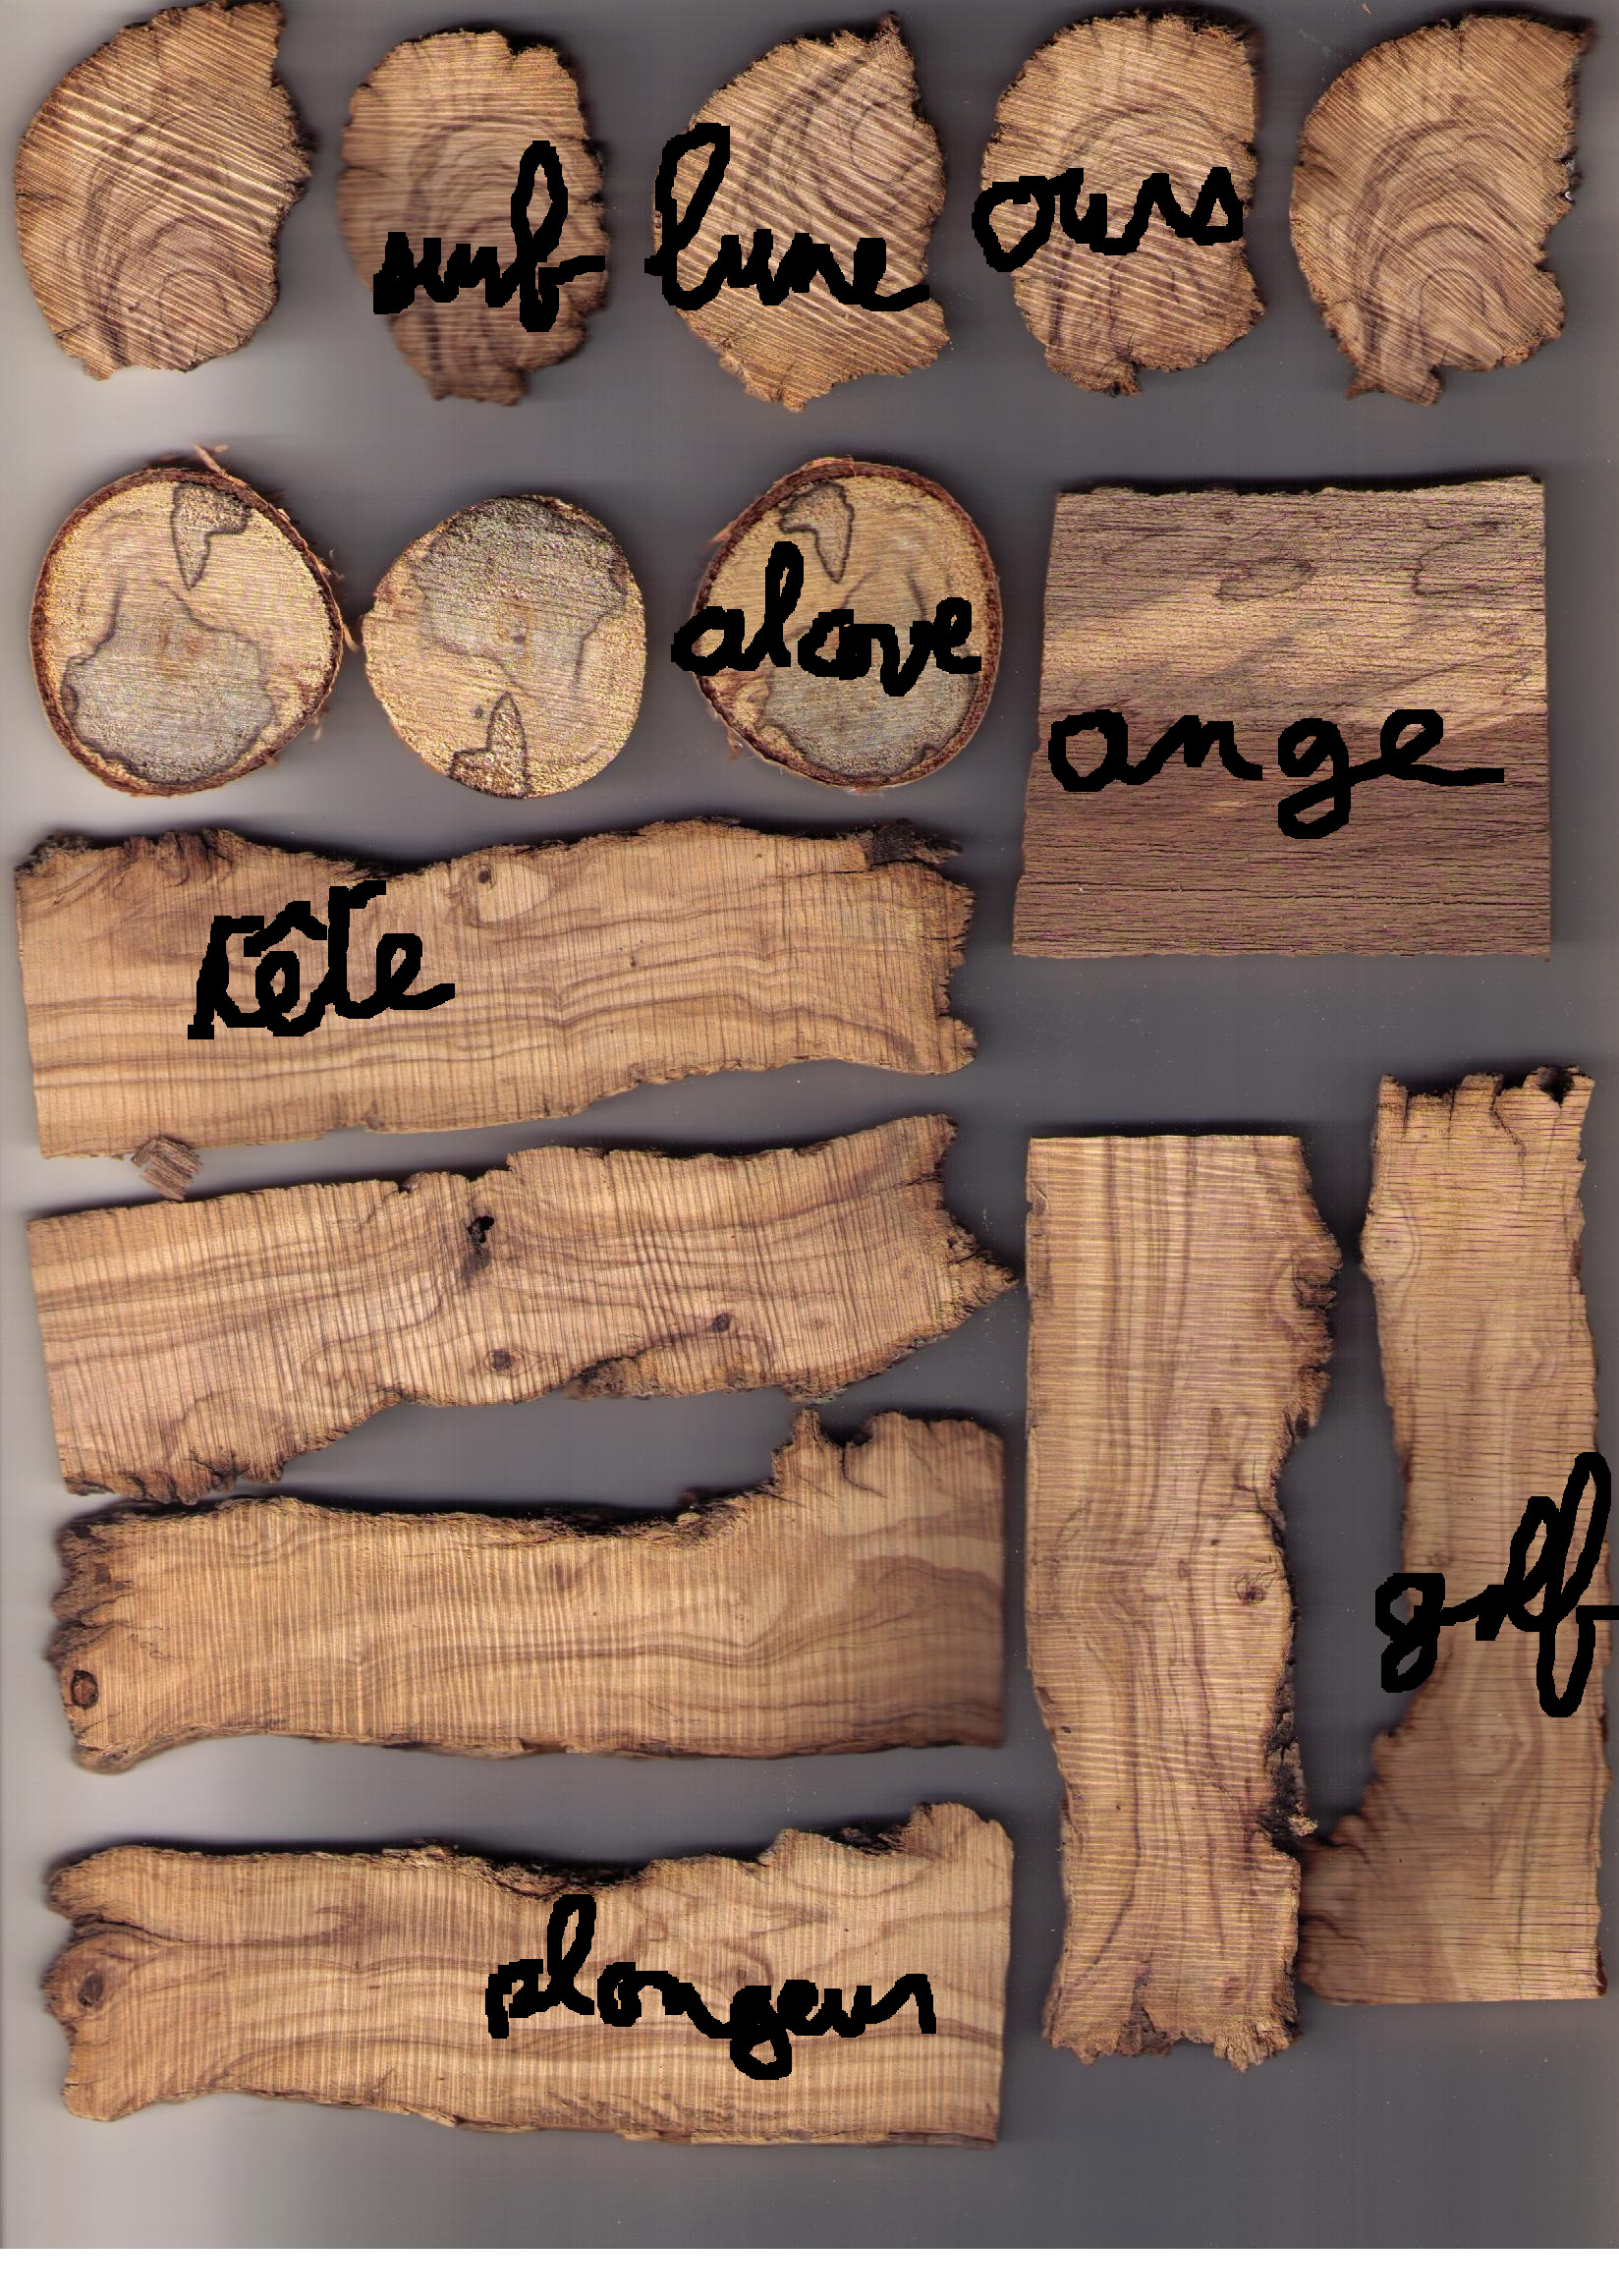 surf lune ours
alcove
ange
tête
golf
plongeur